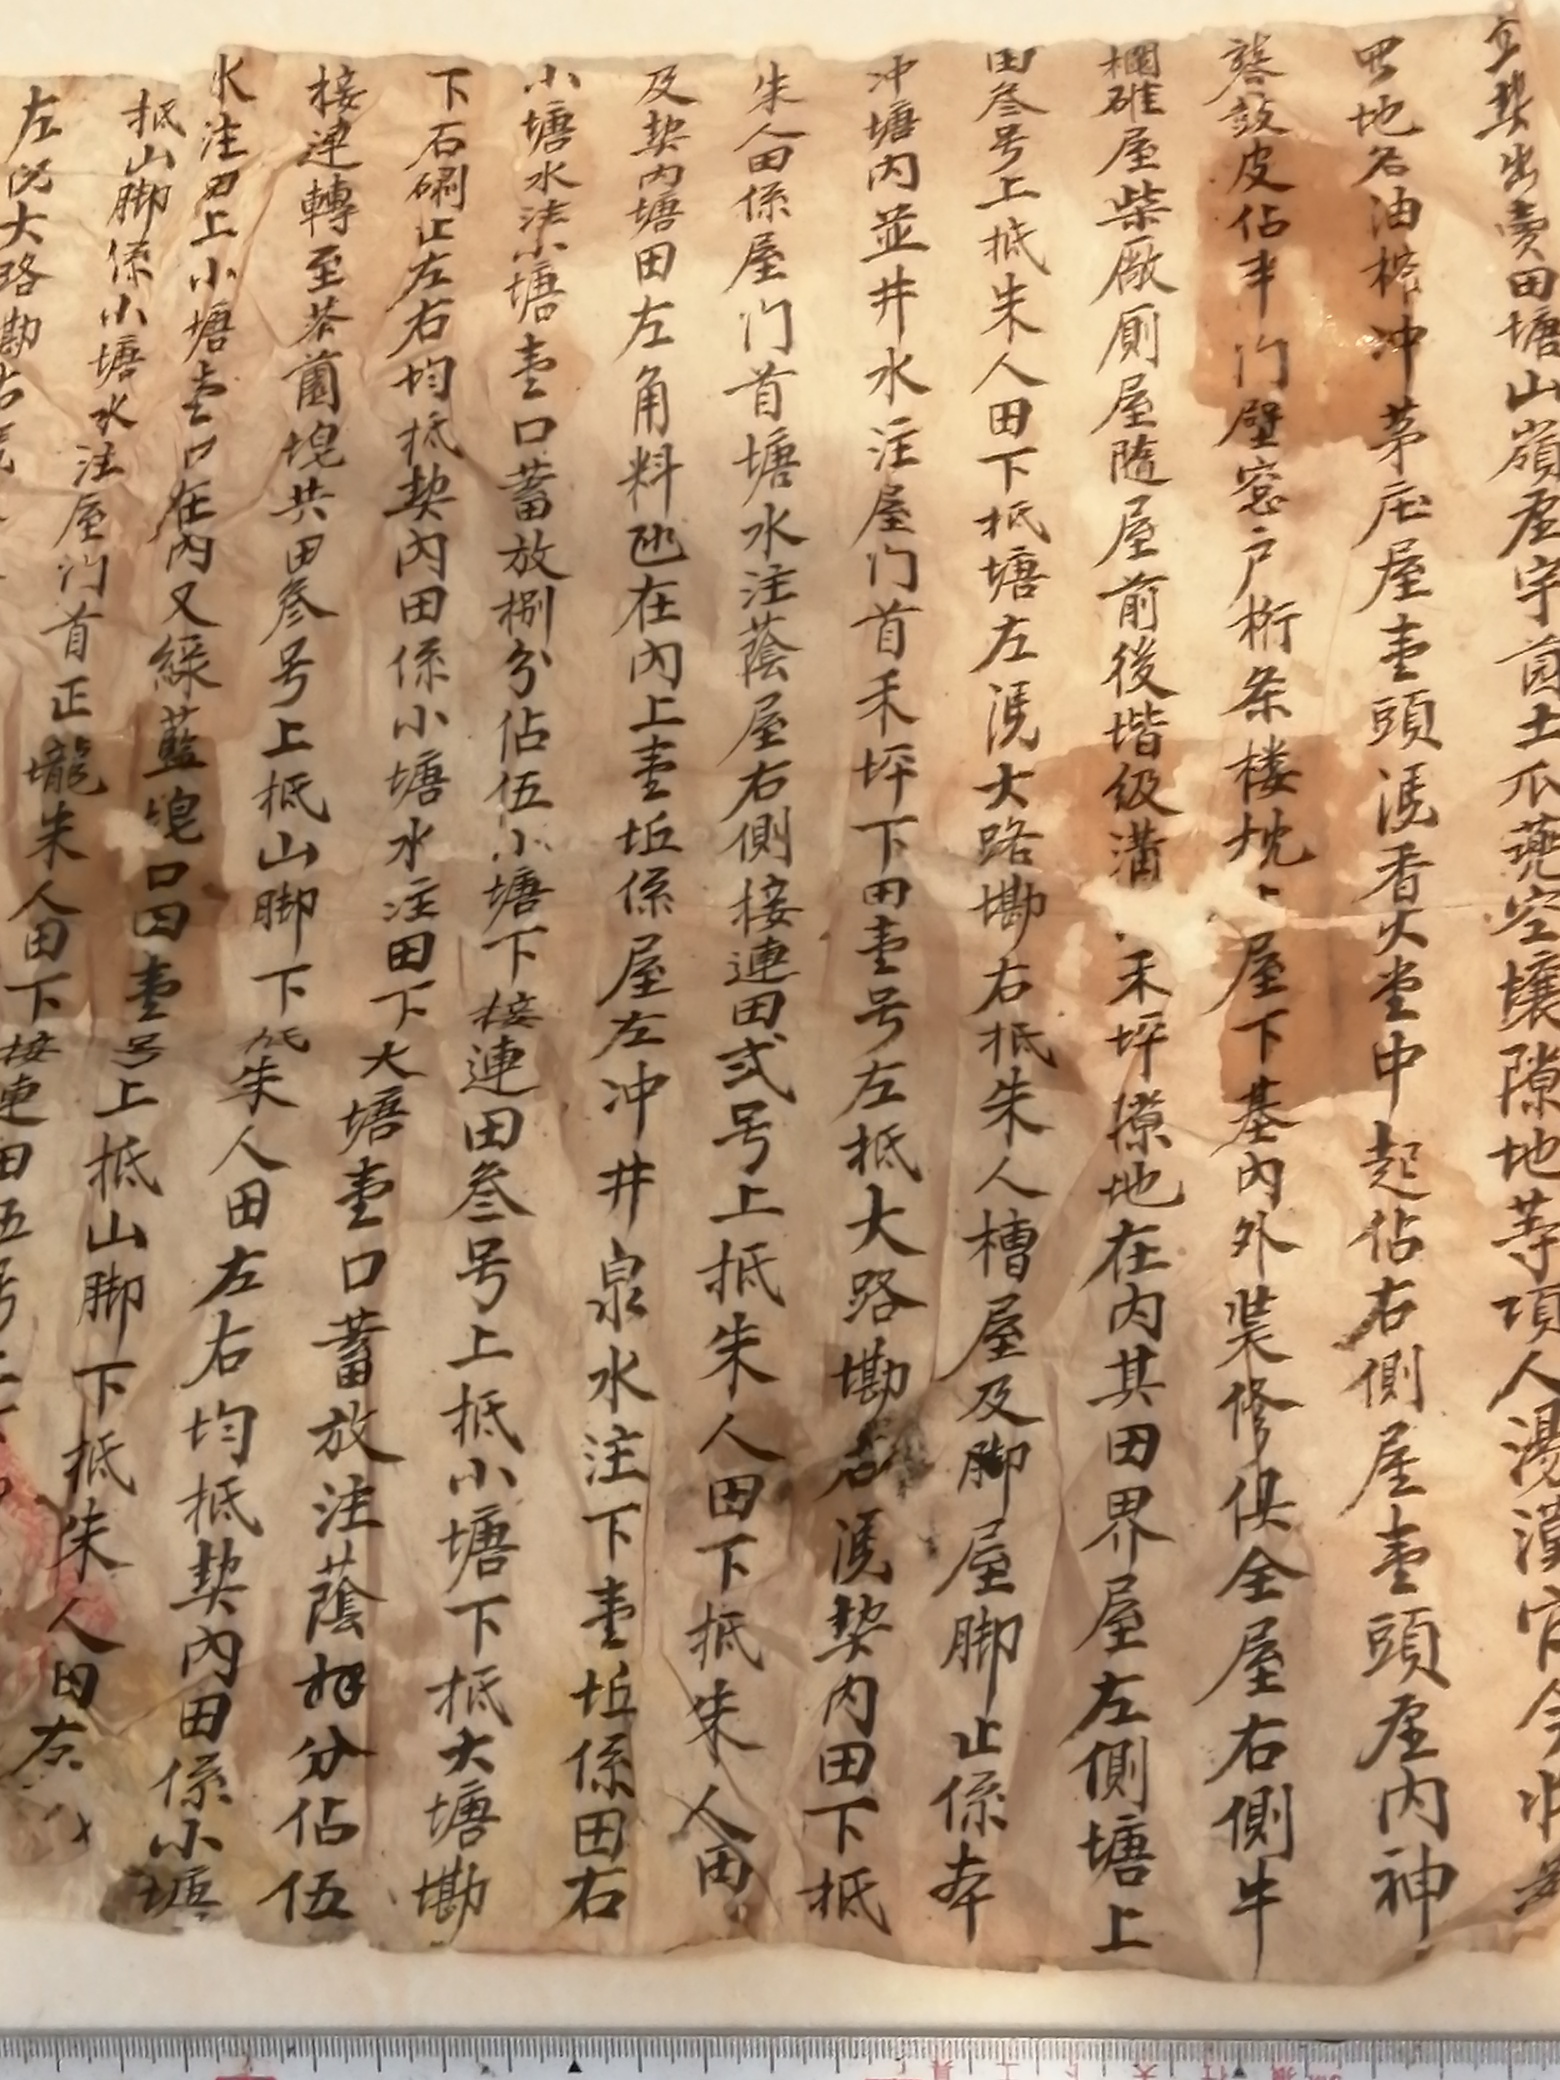 立契出賣田塘山嶺屋宇園土瓜蔸空壤隙地等項人湯漢官今將
地名油榨冲茅庄屋壹頭憑香火堂中起佔右側屋壹頭屋內神
龕鼓皮佔半门壁窓户桁条楼枕上屋下基內外装修俱全屋右側牛
欄碓屋柴厰厠屋隨屋前後堦级溝禾坪隙地在内其田界屋左側塘上
田叁号上抵朱人田下抵塘左憑大路墈右抵朱人槽屋及脚屋脚止係夲
冲塘内並井水注屋门首禾坪下田壹号左抵大路墈右憑契内田下抵
朱人田係屋门首塘水注蔭屋右側接連田弍号上抵朱人田下抵朱人田
及契内塘田左角料在內上壹坵係屋左冲井泉水注下壹坵係田右
小塘水注小塘壹口蓄放捌分佔伍小塘下接連田叁号上抵小塘下抵大塘墈
下石磡止左右均抵契内田係小塘水注田下大塘壹口蓄放注蔭捌分佔伍
接連轉至茶薗塊共田叁号上抵山脚下抵朱人田左右均抵契內田係小塘
水注田上小塘壹口在內又綵藍塊口田壹号上抵山脚下抵朱人田左
抵山脚係小塘水注屋门首正壠朱人田下接連田五号上
左憑大路墈右憑